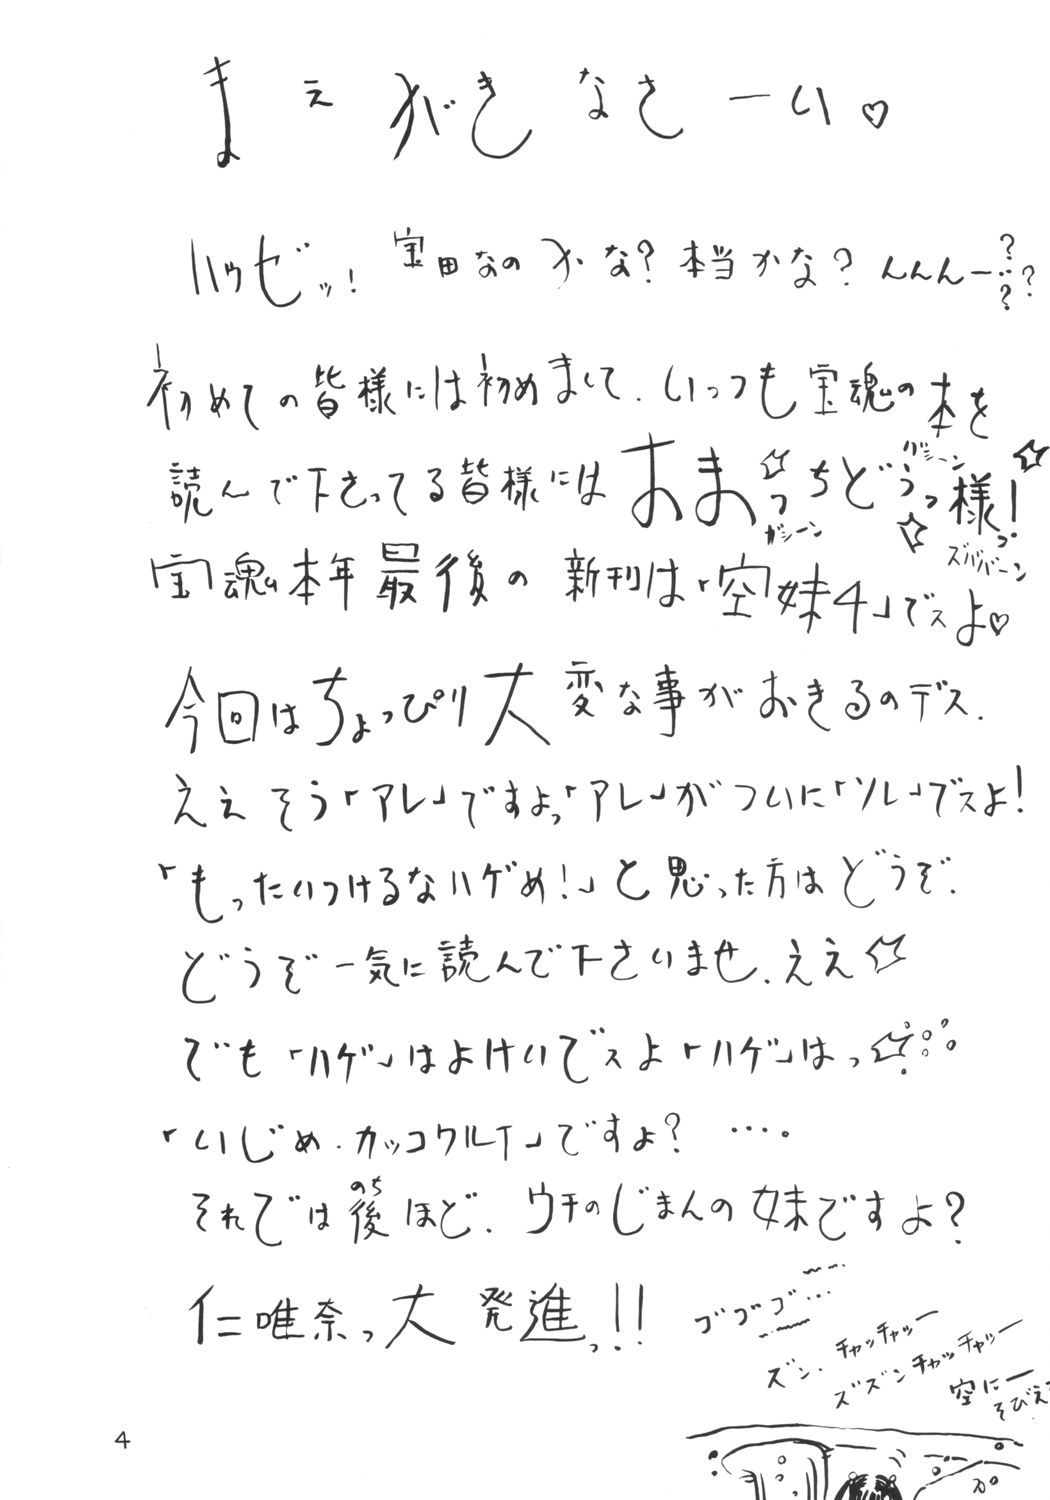 まえがきなさーい♡
ハゥゼッ! 宝田なのかな? 本当かな? んんんー…???
初めての皆様には初めまして. いっつも宝魂の本を
読んで下さってる皆様には おまっちどうっ様っ!
ガシーン
ガシーン
ズババーン
宝魂本年最後の新刊は「空妹4」でスよ♡
今回はちょっぴり大変な事がおきるのデス.
ええそう「アレ」ですよっ「アレ」がついに「ソレ」でスよ!
「もったいつけるなハゲめ!」と思った方はどうぞ.
どうぞ一気に読んで下さいませ. ええ☆
でも「ハゲ」はよけいでスよ「ハゲ」はっ☆
「いじめ・カッコワルイ」ですよ? ….
それでは後ほど. ウチのじまんの妹ですよ?
のち
仁唯奈っ大発進っ!!
ゴゴゴ…
ズン. チャッチャッー
ズズンチャッチャッー
空にー
そびえ
4